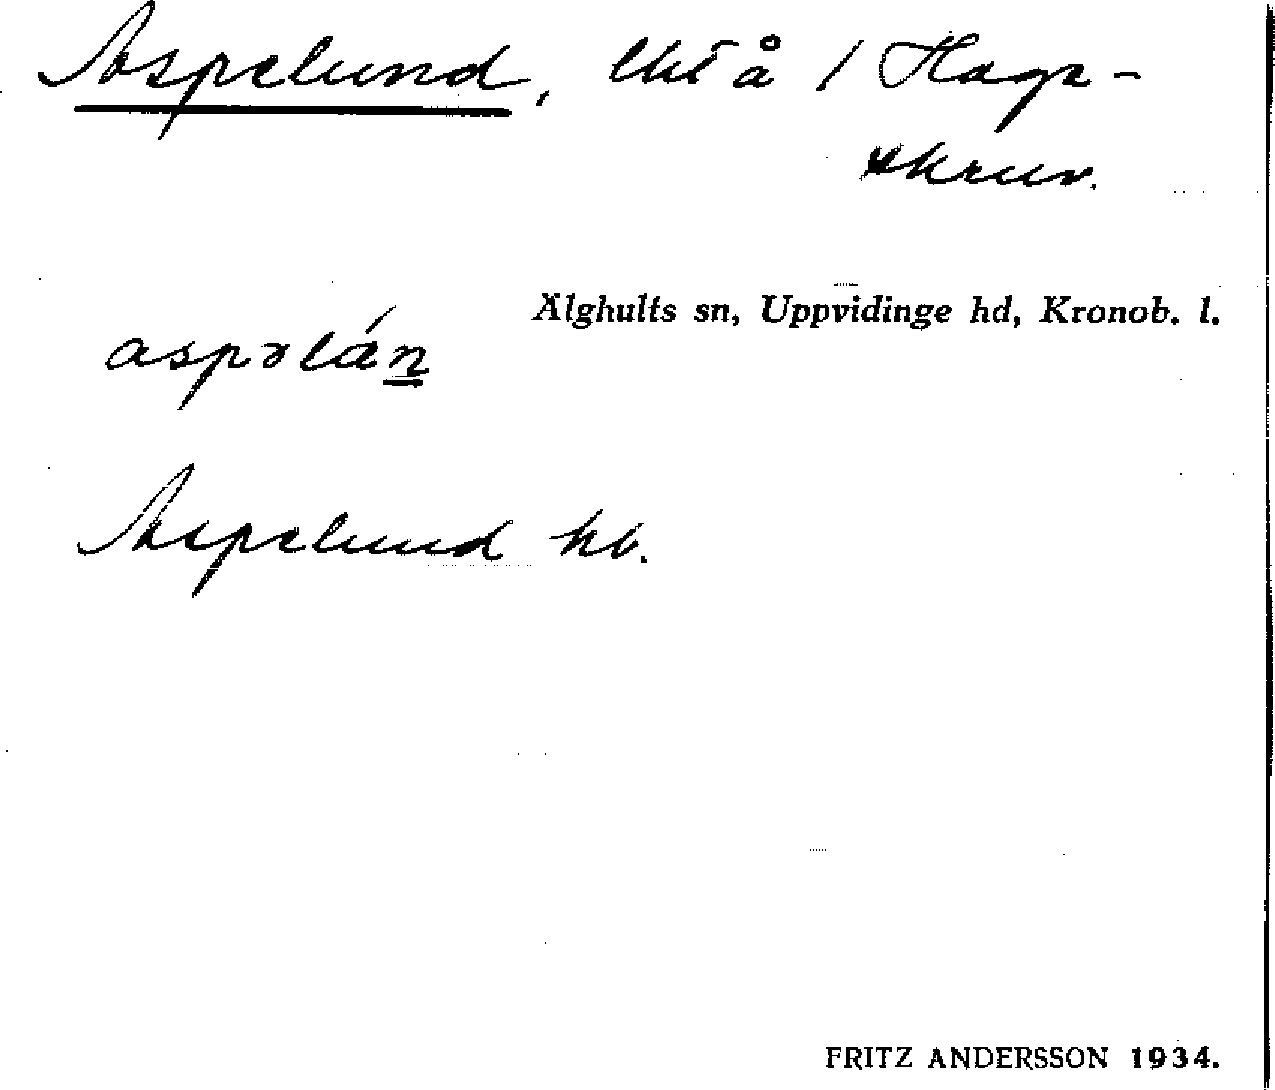 Aspelund, lht å 1 Haga-
skruv.
Älghults sn, Uppvidinge hd, Kronob. l.
aspəlán
Aspelund kb.
FRITZ ANDERSSON 1934.